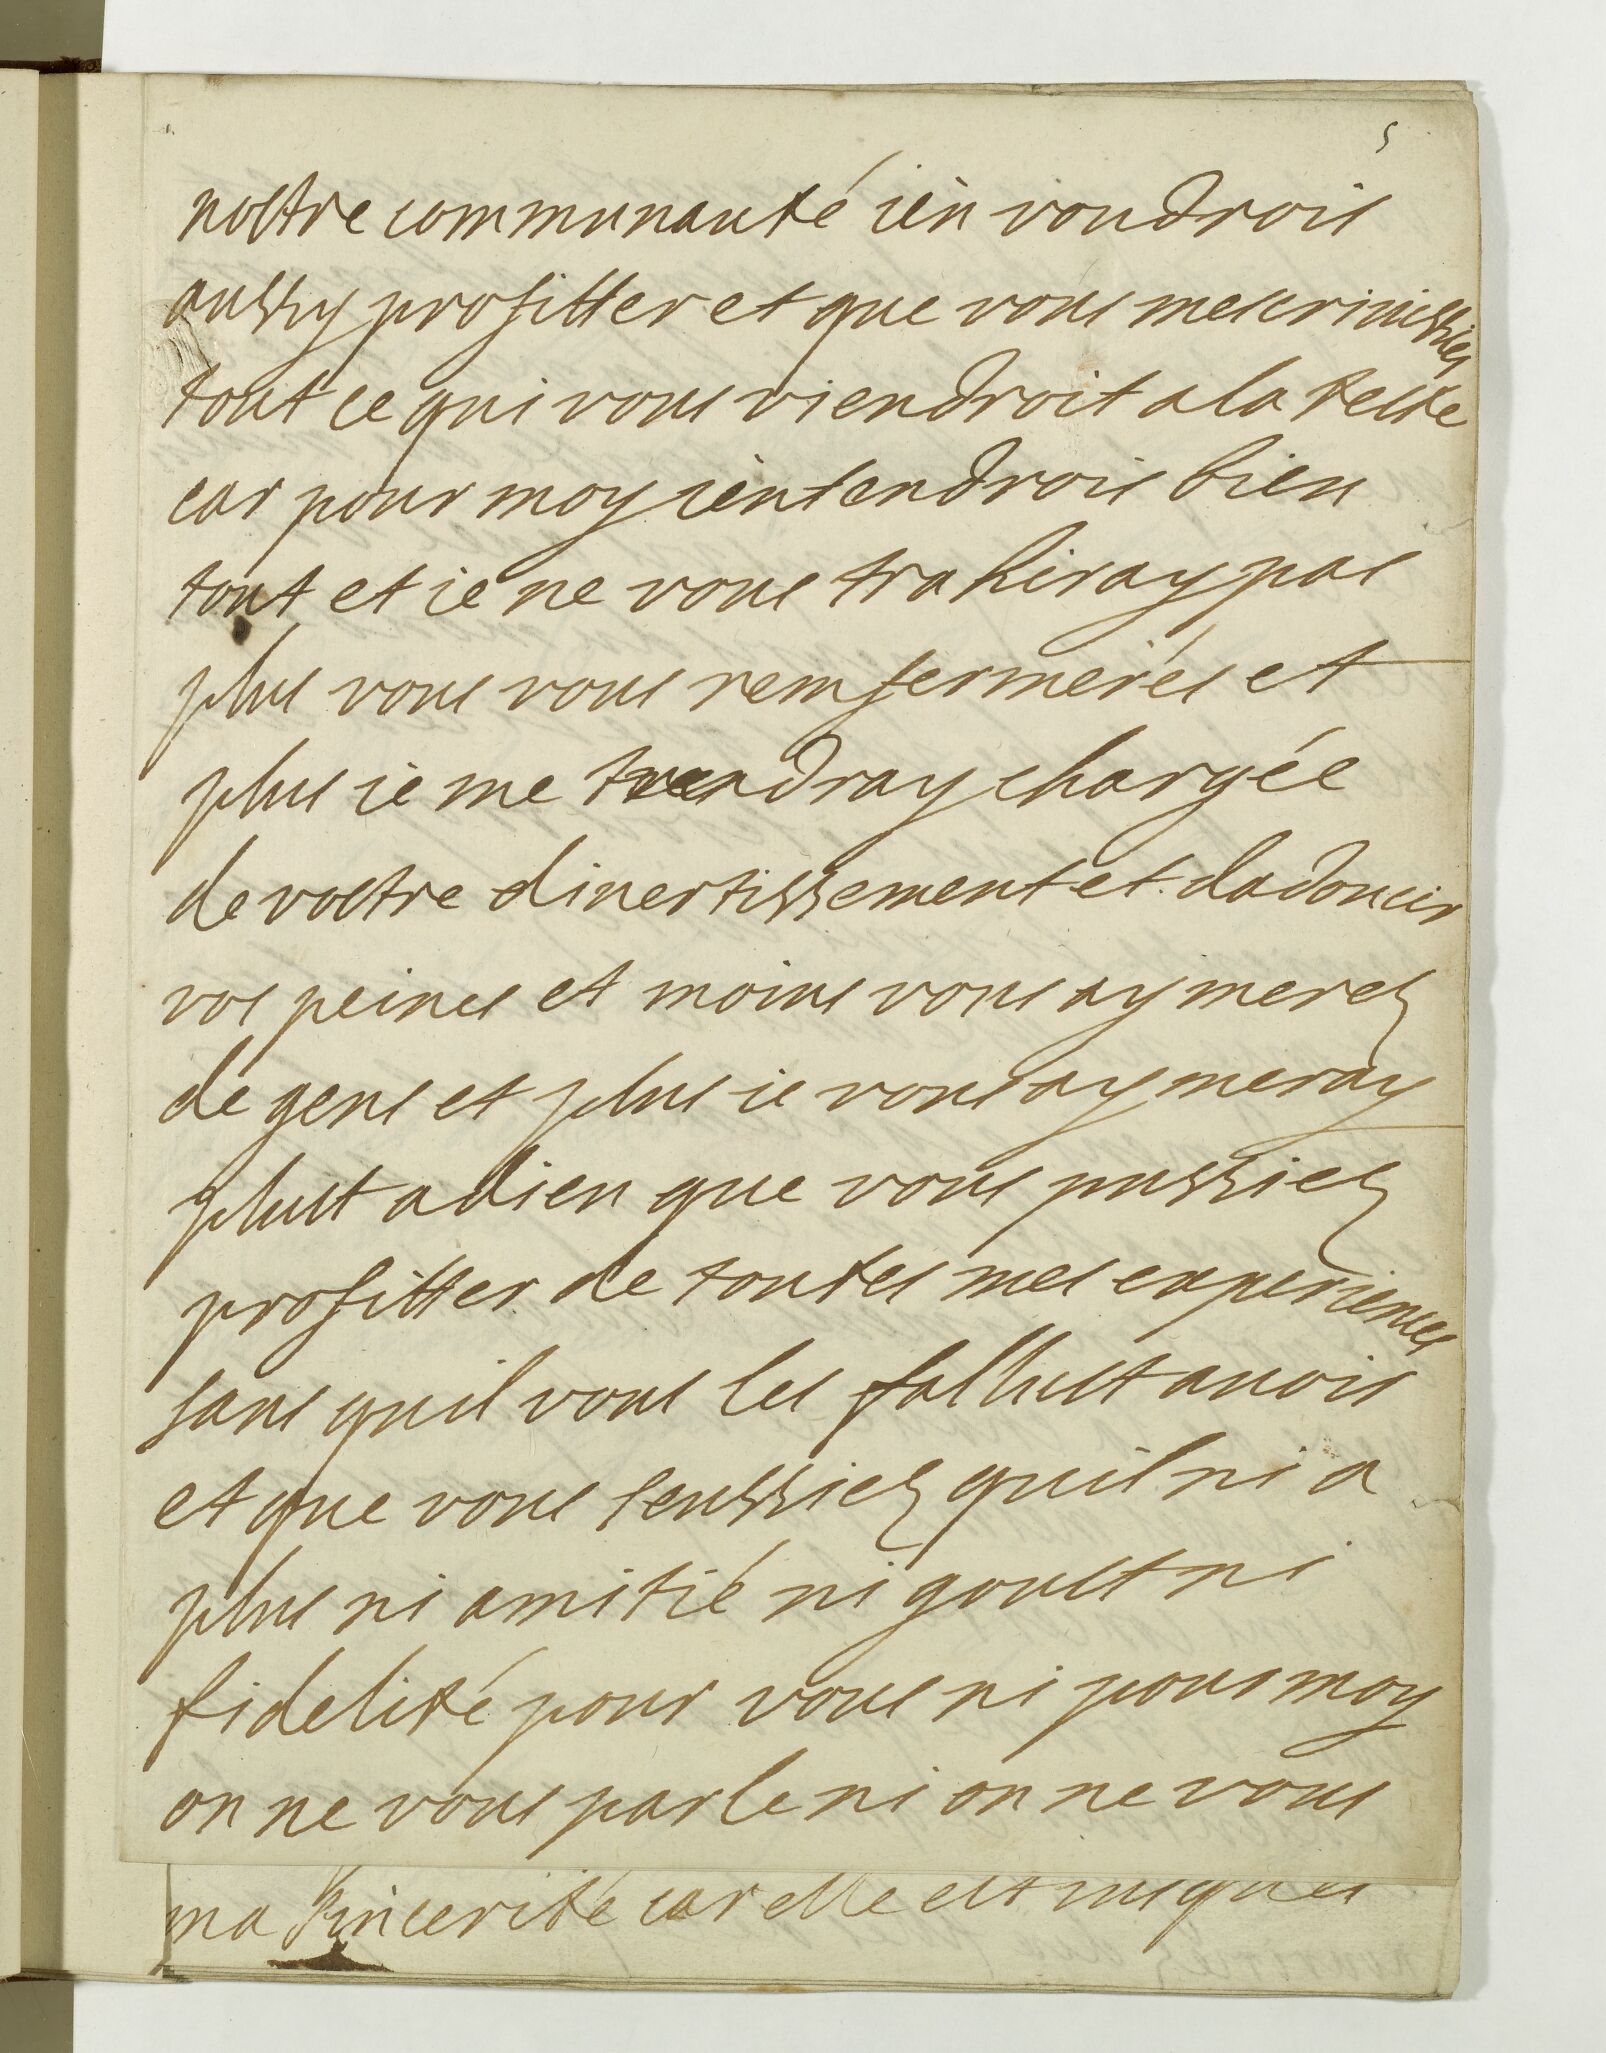 5
nostre communauté ien voudrois
aussy profitter et que vous mescriuissies
tout ce qui vous viendroit a la teste
car pour moy ientendrois bien
tout et ie ne vous trahiray pas
plus vous vous remfermerés et
plus ie me tiendray chargée
de vostre diuertissement et dadoucir
vos peines et moins vous aymerez
de gens et plus ie vous aymeray
plust a dieu que vous pussiez
profitter de toutes mes experiences
sans quil vous les fallust auoir
et que vous seussiez quil ni a
plus ni amitié ni goust ni
fidelité pour vous ni pour moy
on ne vous parle ni on ne vous
ma sincerité car elle est iusques